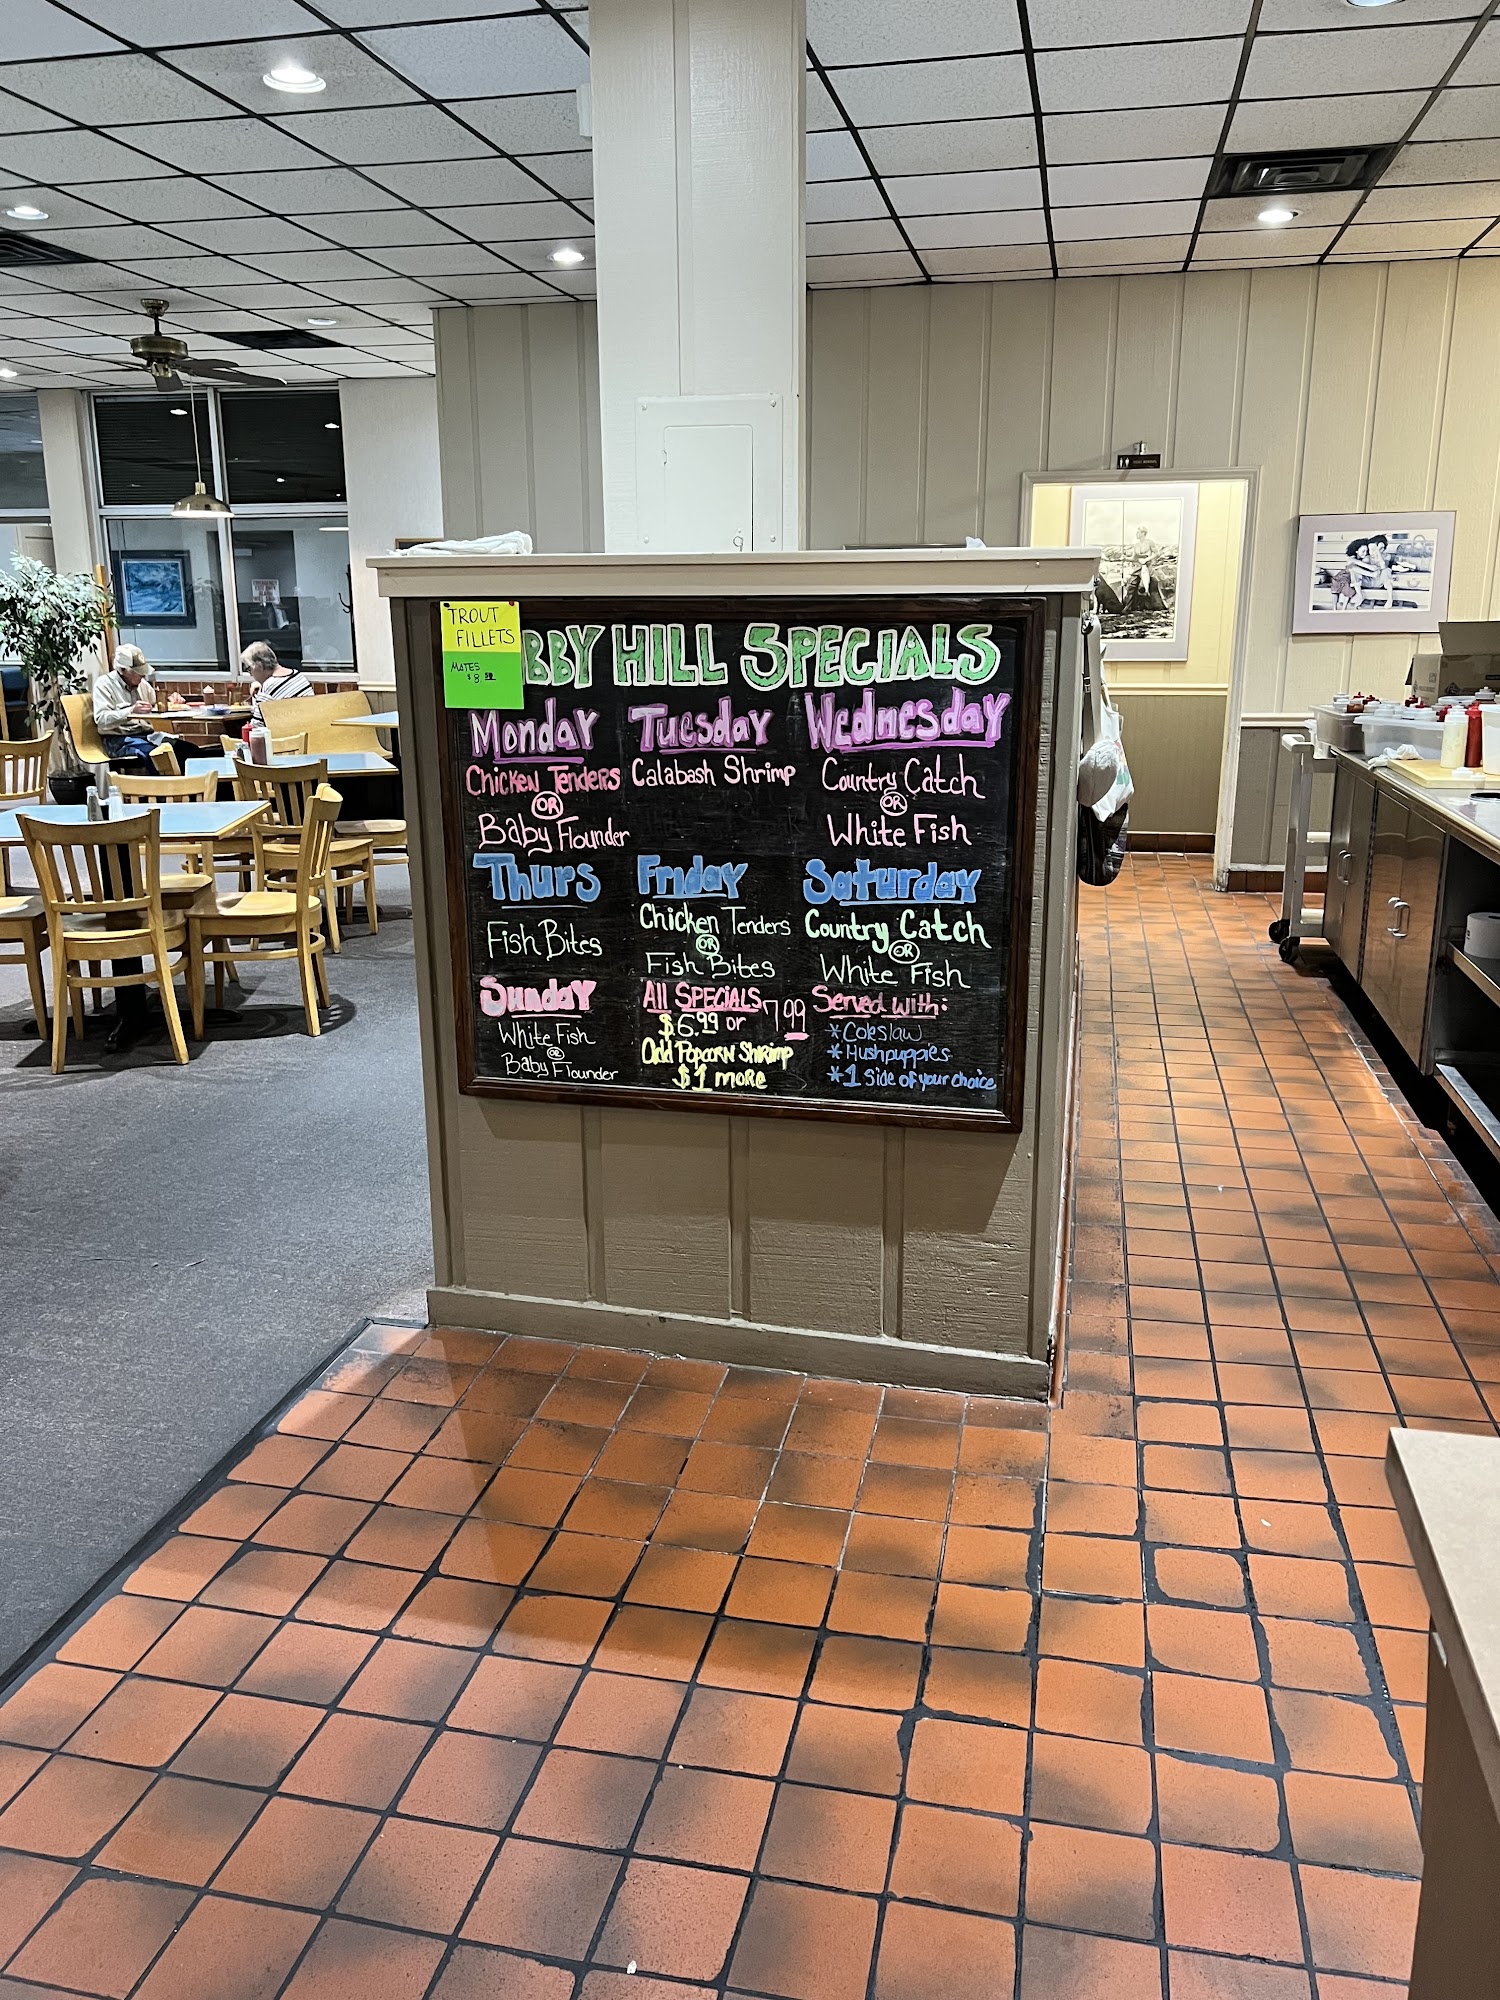 TROUT
FILLETS
MATES
$8.50
BBY HILL SPECIALS
Monday
Chicken Tenders
OR
Baby Flounder
Tuesday
Calabash Shrimp
Wednesday
Country Catch
OR
White Fish
Thurs
Fish Bites
Friday
Chicken Tenders
OR
Fish Bites
Saturday
Country Catch
OR
White Fish
Sunday
White Fish
OR
Baby Flounder
All SPECIALS
$6.99 or 7.99
Add Popcorn Shrimp
$1 more
Served with:
*Coleslaw
*Hushpuppies
*1 Side of your choice